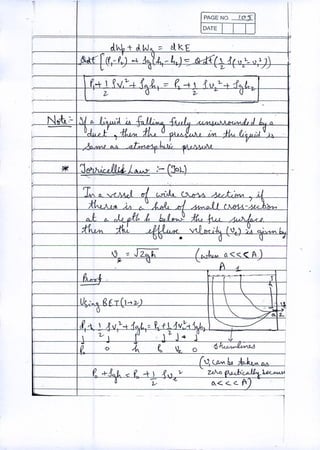 PAGE NO. 105
DATE
dWp + dWg = dKE
Adt [(P₁-P₂) + ρg(h₁-h₂)] = Adt (½ ρ(v₂²-v₁²))
P₁ + 1/2 ρv₁² + ρgh₁ = P₂ + 1/2 ρv₂² + ρgh₂
Note:- If a liquid is falling freely unsurrounded by a
duct, then the pressure in the liquid is
same as atmospheric pressure
* Torricelli's Law :- (Tel)
In a vessel of wide cross section, if
there is a hole of small cross-section
at a depth h below the free surface,
then the efflux velocity (ve) is given by
ve = √2gh (when a<<<A)
Proof
A 1
Using BET (1→2)
h
ve
a 2
P₁ + 1/2 ρv₁² + ρgh₁ = P₂ + 1/2 ρv₂² + ρgh₂
P₀ 0 h P₀ ve 0
streamlines
P₀ + ρgh = P₀ + 1/2 ρve²
(v₁ can be taken as
zero practically because
a<<<A)